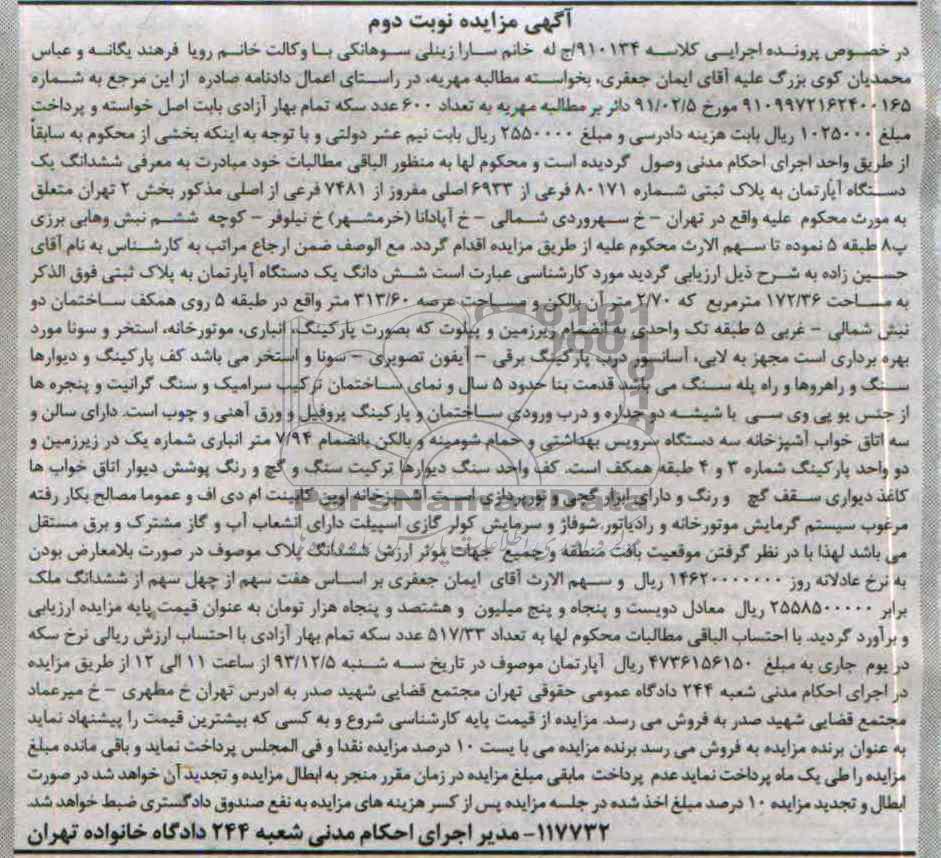 آگهی مزایده نوبت دوم
در خصوص پرونده اجرایی کلاسه ۹۱۰۱۳۴/ج له خانم سارا زینلی سوهانکی با وکالت خانم رویا فرهند یگانه و عباس
محمدیان کوی بزرگ علیه آقای ایمان جعفری، بخواسته مطالبه مهریه، در راستای اعمال دادنامه صادره از این مرجع به شماره
۹۱۰۹۹۷۲۱۶۲۴۰۰۱۶۵ مورخ ۹۱/۰۲/۵ دائر بر مطالبه مهریه به تعداد ۶۰۰ عدد سکه تمام بهار آزادی بابت اصل خواسته و پرداخت
مبلغ ۱۰۲۵۰۰۰ ریال بابت هزینه دادرسی و مبلغ ۲۵۵۰۰۰۰ ریال بابت نیم عشر دولتی و با توجه به اینکه بخشی از محکوم به سابقاً
از طریق واحد اجرای احکام مدنی وصول گردیده است و محکوم لها به منظور الباقی مطالبات خود مبادرت به معرفی ششدانگ یک
دستگاه آپارتمان به پلاک ثبتی شماره ۸۰۱۷۱ فرعی از ۶۹۳۳ اصلی مفروز از ۷۴۸۱ فرعی از اصلی مذکور بخش ۲ تهران متعلق
به مورث محکوم علیه واقع در تهران - خ سهروردی شمالی - خ آپادانا (خرمشهر) خ نیلوفر - کوچه ششم نبش وهابی برزی
پ۸ طبقه ۵ نموده تا سهم الارث محکوم علیه از طریق مزایده اقدام گردد. مع الوصف ضمن ارجاع مراتب به کارشناس به نام آقای
حسین زاده به شرح ذیل ارزیابی گردید مورد کارشناسی عبارت است شش دانگ یک دستگاه آپارتمان به پلاک ثبتی فوق الذکر
به مساحت ۱۷۲/۳۶ مترمربع که ۲/۷۰ متر آن بالکن و مساحت عرصه ۳۱۳/۶۰ متر واقع در طبقه ۵ روی همکف ساختمان دو
نبش شمالی - غربی ۵ طبقه تک واحدی به انضمام زیرزمین و پیلوت که بصورت پارکینگ، انباری، موتورخانه، استخر و سونا مورد
بهره برداری است مجهز به لابی، آسانسور درب پارکینگ برقی - آیفون تصویری - سونا و استخر می باشد کف پارکینگ و دیوارها
سنگ و راهروها و راه پله سنگ می باشد قدمت بنا حدود ۵ سال و نمای ساختمان ترکیب سرامیک و سنگ گرانیت و پنجره ها
از جنس یو پی وی سی با شیشه دو جداره و درب ورودی ساختمان و پارکینگ پروفیل و ورق آهنی و چوب است. دارای سالن و
سه اتاق خواب آشپزخانه سه دستگاه سرویس بهداشتی و حمام شومینه و بالکن بانضمام ۷/۹۴ متر انباری شماره یک در زیرزمین و
دو واحد پارکینگ شماره ۳ و ۴ طبقه همکف است. کف واحد سنگ دیوارها ترکیت سنگ و گچ و رنگ پوشش دیوار اتاق خواب ها
کاغذ دیواری سقف گچ و رنگ و دارای ابزار گچی و نورپردازی است آشپزخانه اوپن کابینت ام دی اف و عموما مصالح بکار رفته
مرغوب سیستم گرمایش موتورخانه و رادیاتور شوفاژ و سرمایش کولر گازی اسپیلت دارای انشعاب آب و گاز مشترک و برق مستقل
می باشد لهذا با در نظر گرفتن موقعیت بافت منطقه و جمیع جهات موثر ارزش ششدانگ پلاک موصوف در صورت بلامعارض بودن
به نرخ عادلانه روز ۱۴۶۲۰۰۰۰۰۰۰ ریال و سهم الارث آقای ایمان جعفری بر اساس هفت سهم از چهل سهم از ششدانگ ملک
برابر ۲۵۵۸۵۰۰۰۰۰ ریال معادل دویست و پنجاه و پنج میلیون و هشتصد و پنجاه هزار تومان به عنوان قیمت پایه مزایده ارزیابی
و برآورد گردید. با احتساب الباقی مطالبات محکوم لها به تعداد ۵۱۷/۳۳ عدد سکه تمام بهار آزادی با احتساب ارزش ریالی نرخ سکه
در یوم جاری به مبلغ ۴۷۳۶۱۵۶۱۵۰ ریال آپارتمان موصوف در تاریخ سه شنبه ۹۳/۱۲/۵ از ساعت ۱۱ الی ۱۲ از طریق مزایده
در اجرای احکام مدنی شعبه ۲۴۴ دادگاه عمومی حقوقی تهران مجتمع قضایی شهید صدر به ادرس تهران خ مطهری - خ میرعماد
مجتمع قضایی شهید صدر به فروش می رسد. مزایده از قیمت پایه کارشناسی شروع و به کسی که بیشترین قیمت را پیشنهاد نماید
به عنوان برنده مزایده به فروش می رسد برنده مزایده می با یست ۱۰ درصد مزایده نقدا و فی المجلس پرداخت نماید و باقی مانده مبلغ
مزایده را طی یک ماه پرداخت نماید عدم پرداخت مابقی مبلغ مزایده در زمان مقرر منجر به ابطال مزایده و تجدید آن خواهد شد در صورت
ابطال و تجدید مزایده ۱۰ درصد مبلغ اخذ شده در جلسه مزایده پس از کسر هزینه های مزایده به نفع صندوق دادگستری ضبط خواهد شد.
۱۱۷۷۳۲- مدیر اجرای احکام مدنی شعبه ۲۴۴ دادگاه خانواده تهران
ParsNamadData